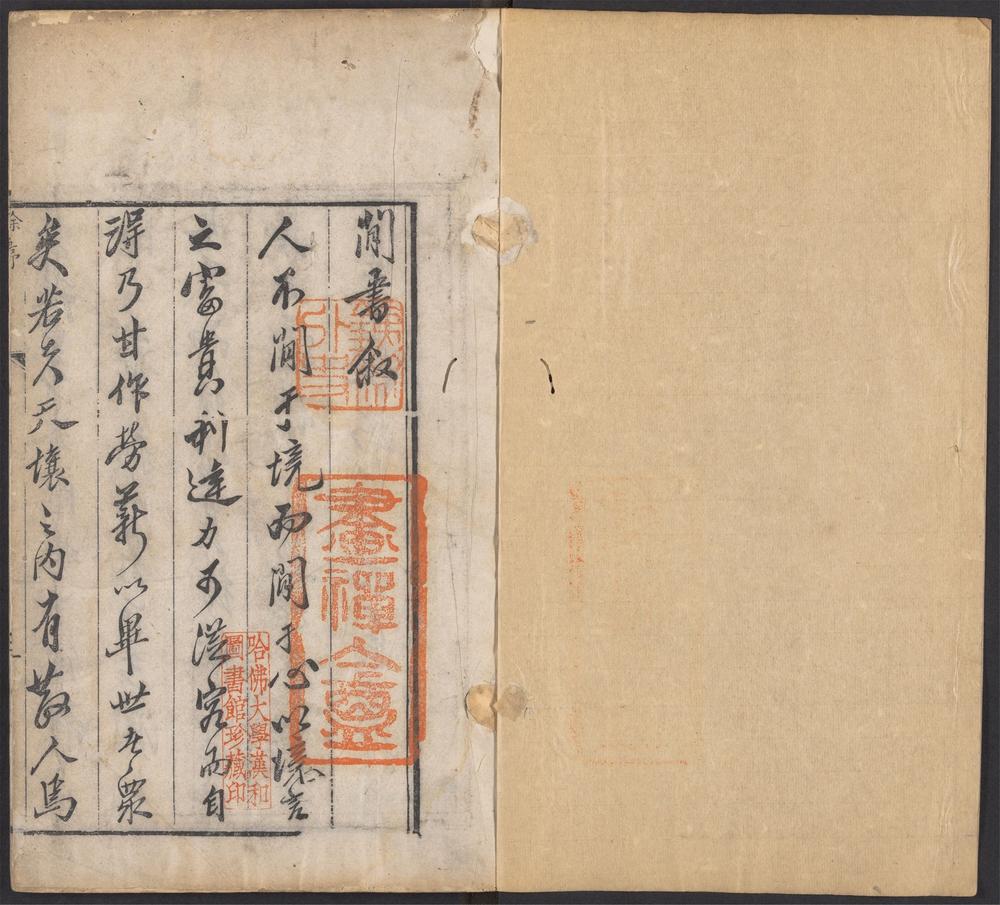 閒書敘
人不閒于境而閒于心以境言
之富貴利達力可從容而自
得乃甘作勞薪以畢世者眾
矣若夫天壤之內有散人焉
徐序
畫禪盦
哈佛大學漢和
圖書館珍藏印